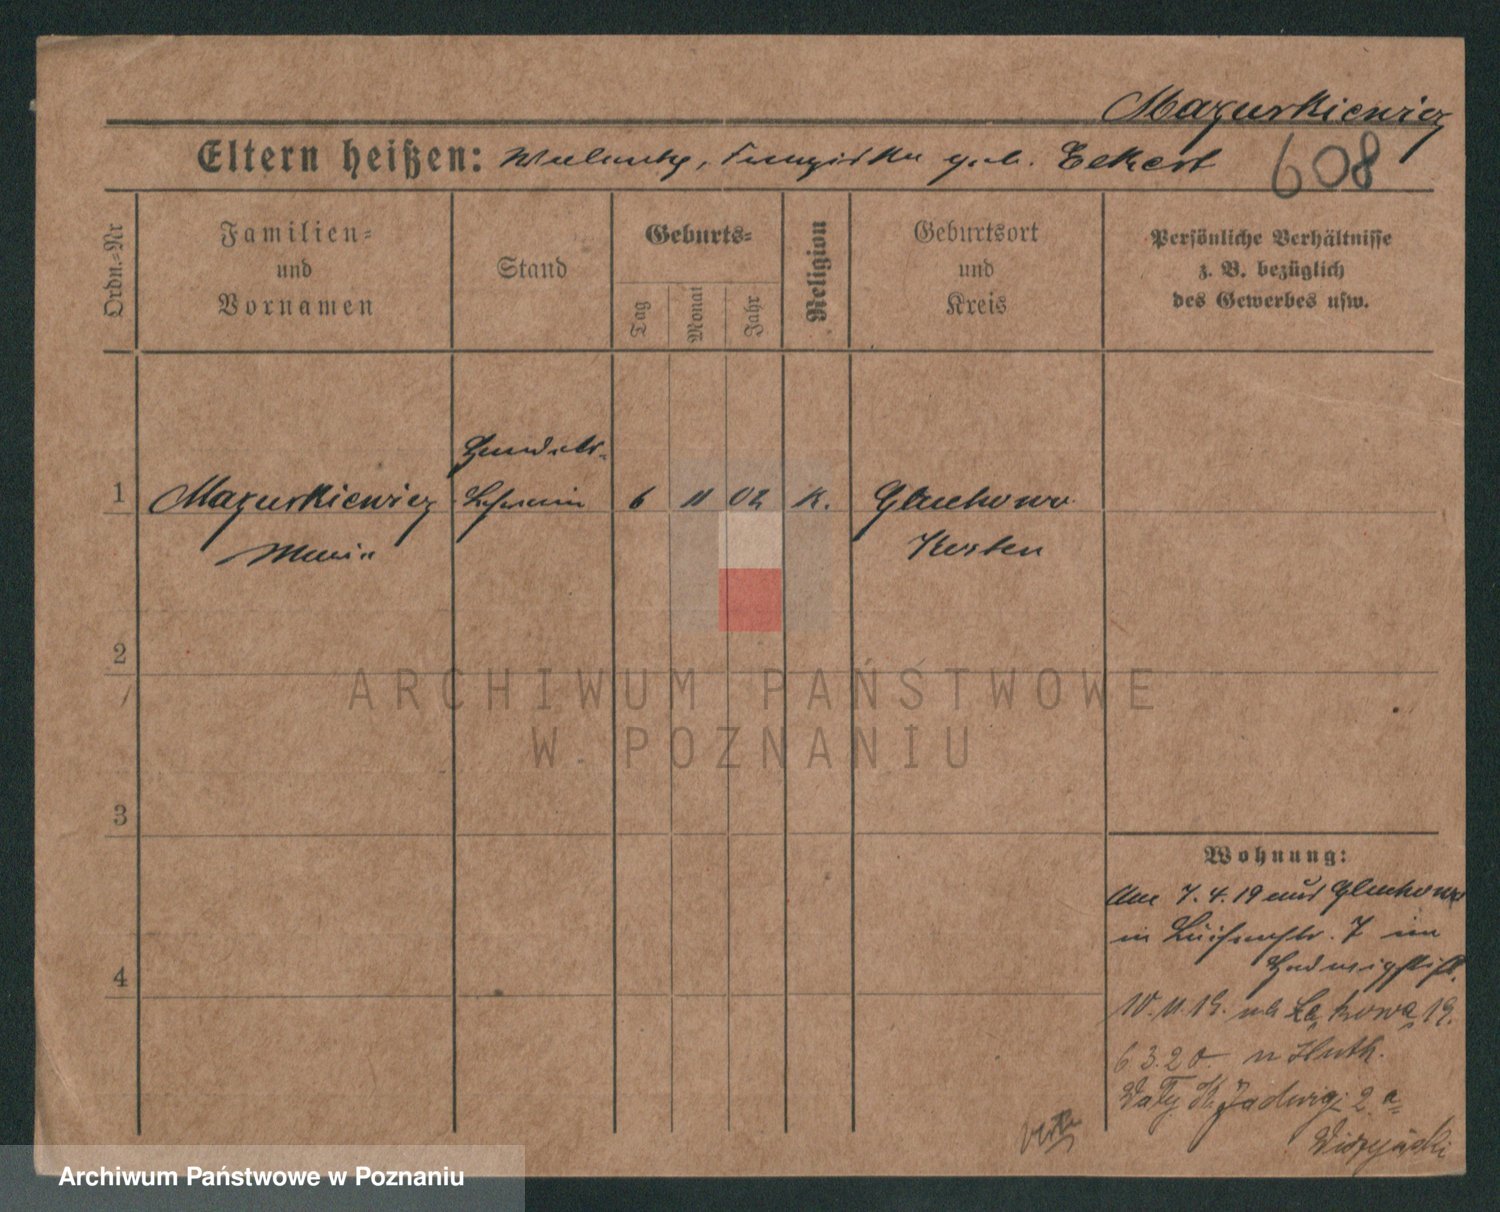 Mazurkiewicz
Eltern heißen: Valenty, Franziska geb. Eckert
608
Ordn.-Nr
Familien-
und
Vornamen
Stand
Geburts-
Tag
Monat
Jahr
Religion
Geburtsort
und
Kreis
Persönliche Verhältnisse
z. B. bezüglich
des Gewerbes usw.
Handels-
1 Mazurkiewicz 6 11 02 K. Gluchowo
Maria Kosten
2
ARCHIWUM PAŃSTWOWE
W POZNANIU
3
Wohnung:
Am 7.4.19 aus Gluchowo
in Luisenstr. 7 im
Hedwigstift.
10.11.19. Łąkowa 19.
6.3.20
Wały K. Jadwigi 2 a
4
Archiwum Państwowe w Poznaniu